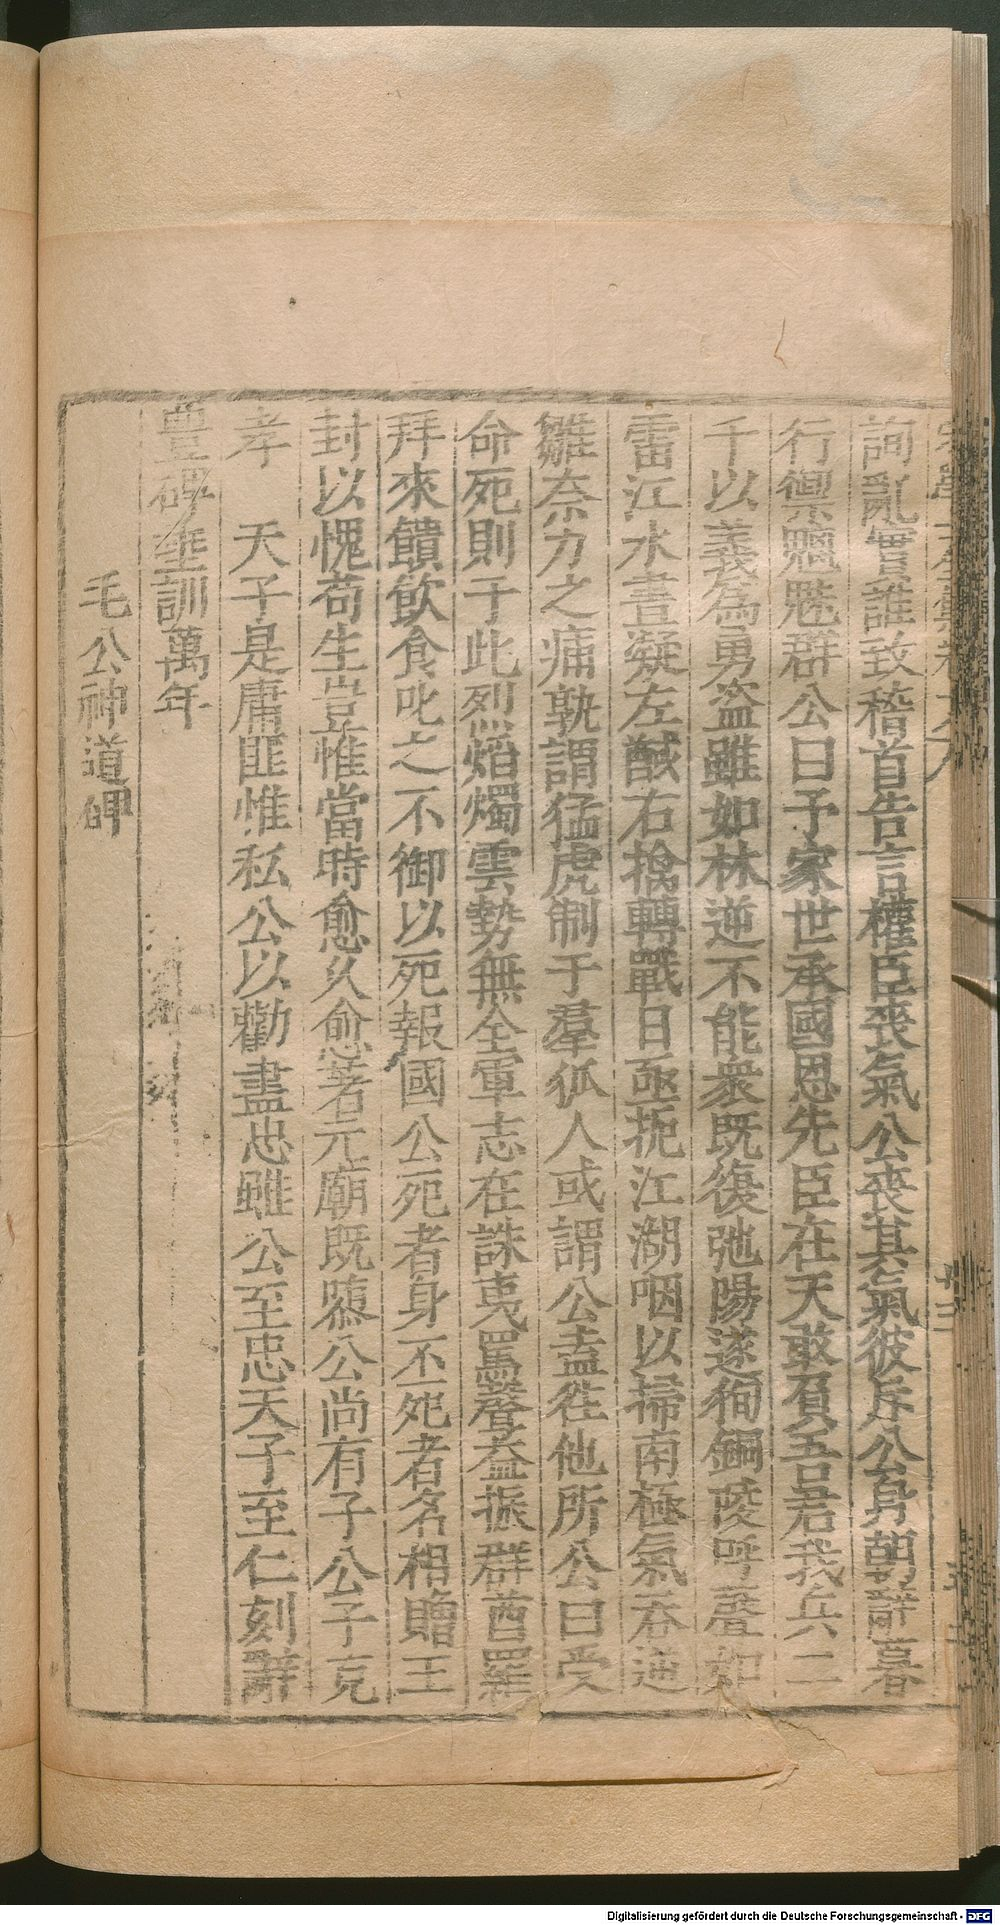 詢亂實誰致稽首告言權臣喪氣公喪其氣彼斥公舟朝辭暮
行禦飄颻群公曰予家世承國恩先臣在天敢負吾君我兵二
千以義為勇盗雖如林逆不能衆既復弛陽遂徇銅陵呼聲如
雷江水晝凝左馘右擒轉戰日亟扼江湖咽以掃南極氣吞逆
雛奈力之痡孰謂猛虎制于羣狐人或謂公盍徃他所公曰受
命死則于此烈焰燭雲勢無全軍志在誅夷罵聲益振群酋羅
拜來饋飲食叱之不御以死報國公死者身不死者名相贈王
封以愧苟生豈惟當時愈久愈著元廟既隳公尚有子公子克
孝 天子是庸匪惟私公以勸盡忠雖公至忠天子至仁刻辭
豊碑埀訓萬年
毛公神道碑
Digitalisierung gefördert durch die Deutsche Forschungsgemeinschaft - DFG